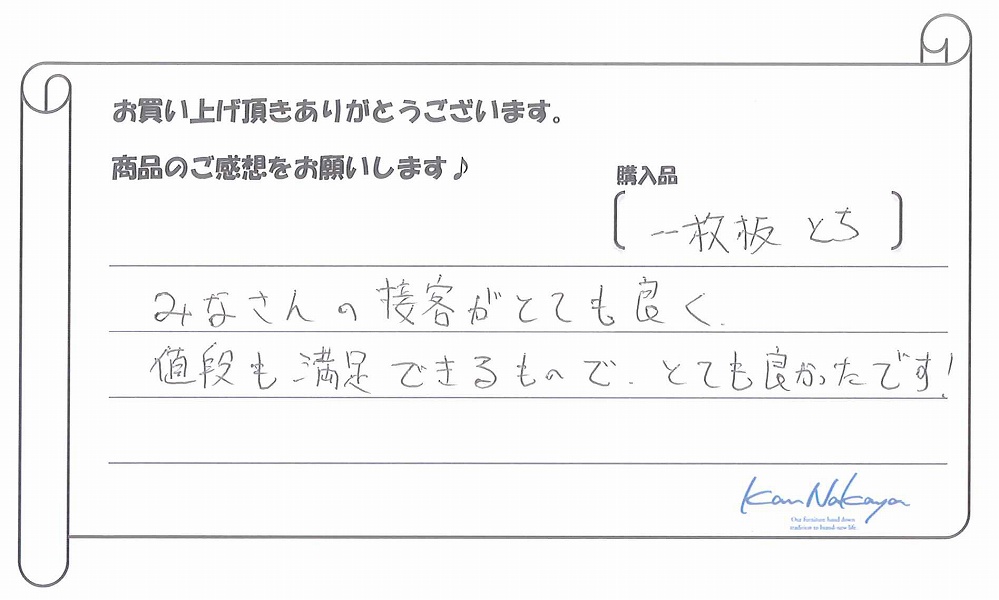 お買い上げ頂きありがとうございます。
商品のご感想をお願いします♪
購入品
一枚板 とち
みなさんの接客がとても良く、
値段も満足できるもので、とても良かったです!
Kan Nakaya
Our furniture hand down
tradition to brand-new life.